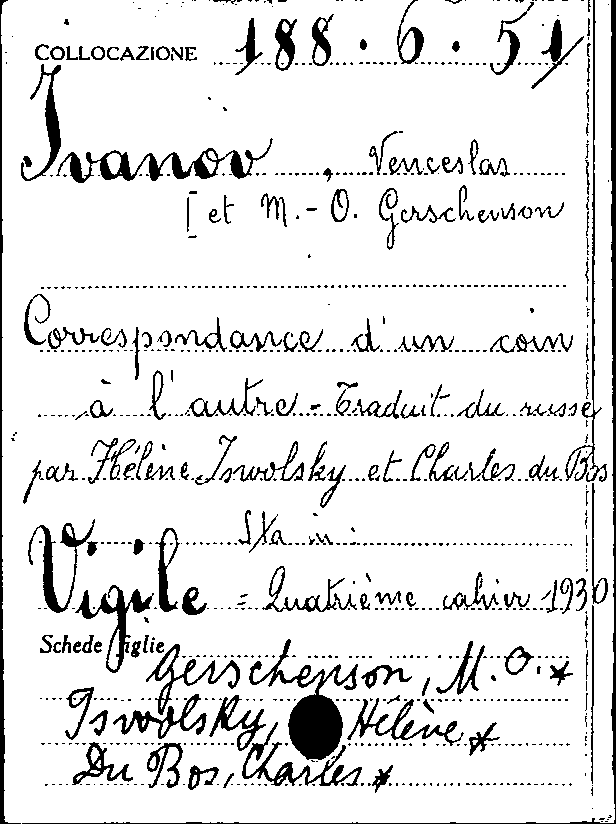 COLLOCAZIONE 188.6.51
Ivanov, Venceslas
[et M.-O. Gerschenson
Correspondance d'un coin
à l'autre - Traduit du russe
par Hélène Iswolsky et Charles du Bos
Sta in:
Vigile = Quatrième cahier 1930
Schede figlie
Gerschenson, M. O. *
Iswolsky, Hélène *
Du Bos, Charles *